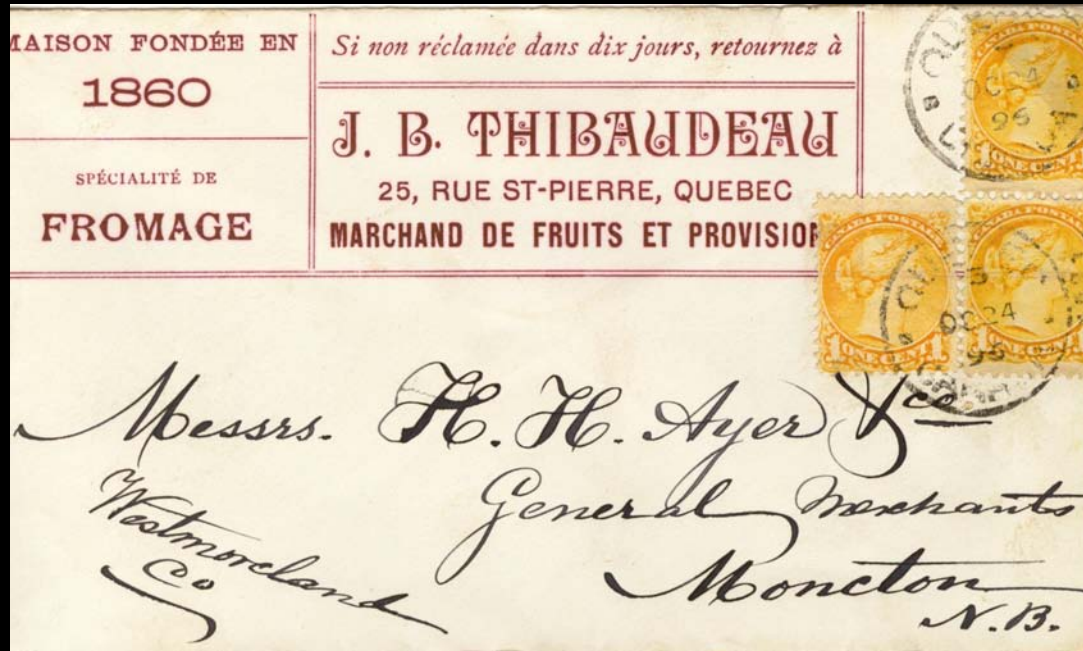 MAISON FONDÉE EN
1860
SPÉCIALITÉ DE
FROMAGE
Si non réclamée dans dix jours, retournez à
J. B. THIBAUDEAU
25, RUE ST-PIERRE, QUEBEC
MARCHAND DE FRUITS ET PROVISION
CANADA POSTAGE
1 ONE CENT 1
OC 24
95
CANADA POSTAGE
1 ONE CENT 1
CANADA POSTAGE
1 ONE CENT 1
OC 24
95
Messrs. H. H. Ayer & Co
General Merchants
Moncton
N.B.
Westmoreland
Co